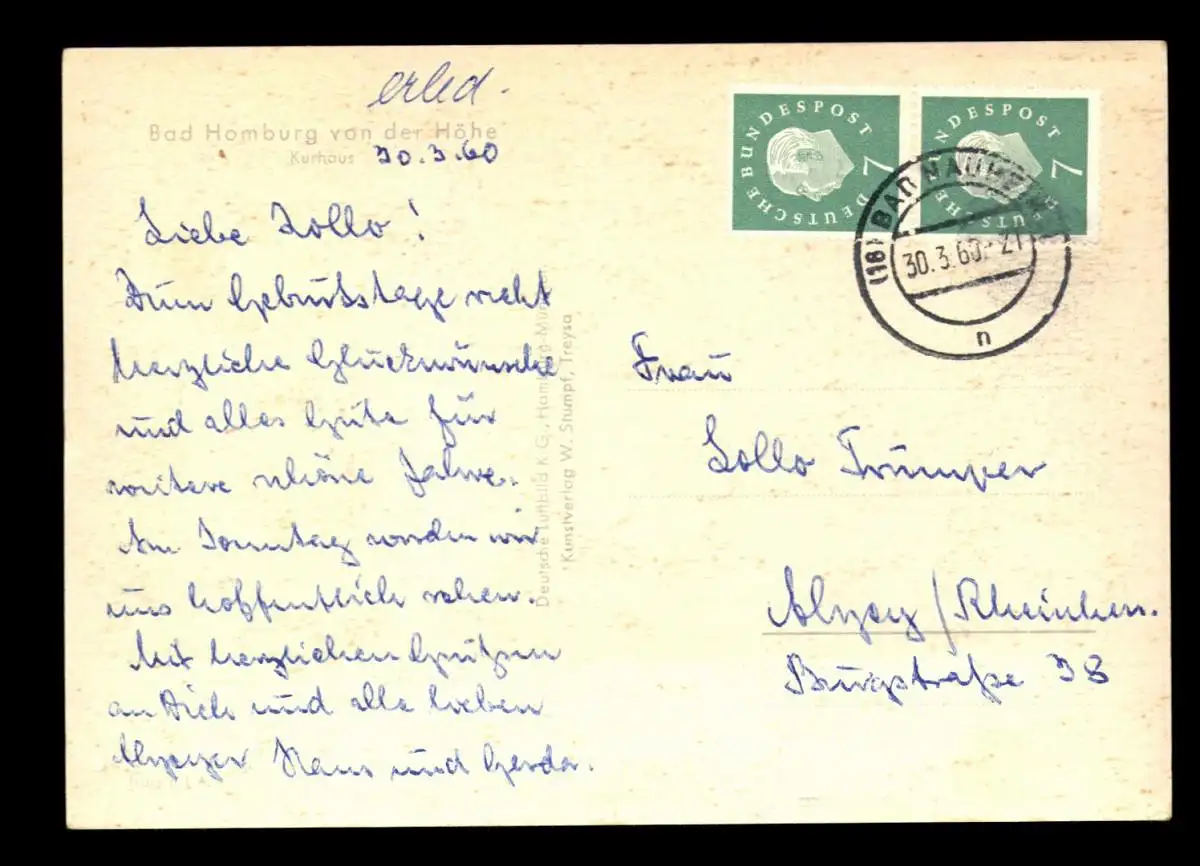 erled.
Bad Homburg von der Höhe
Kurhaus
30.3.60
Liebe Lollo!
Zum Geburtstage recht
herzliche Glückwünsche
und alles Gute für
weitere schöne Jahre.
Am Sonntag werden wir
uns hoffentlich sehen.
Mit herzlichen Grüßen
an Dich und alle lieben
Alzeyer Hans und Gerda.
Deutsche Luftbild K.G., Hamburg
Kunstverlag W. Stumpf, Treysa
DEUTSCHE BUNDESPOST
7
DEUTSCHE BUNDESPOST
7
(16) BAD NAUHEIM
30.3.60.-21
n
Frau
Lollo Trumper
Alzey/Rheinhess.
Burgstraße 38